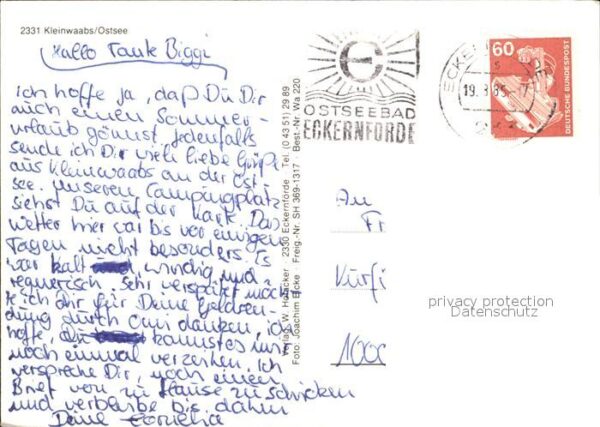 2331 Kleinwaabs/Ostsee
Hallo Tante Biggi
ich hoffe ja, daß Du Dir
auch einen Sommer-
urlaub gönnst jedenfalls
sende ich Dir viele liebe Grüße
aus Kleinwaabs an der Ost
see. Unseren Campingplatz
siehst Du auf der Karte. Das
Wetter hier war bis vor einigen
Tagen nicht besonders. Es
war kalt, windig und
regnerisch. Sehr verspätet möch
te ich dir für Deine Geldsen-
dung durch Omi danken, ich
hoffe, Du kannst es mir
noch einmal verzeihen. Ich
verspreche Dir, noch einen
Brief von zu Hause zu schicken
und verbleibe bis dahin
Deine Cornelia
Verlag: W. 2330 Eckernförde Tel. (0 43 51) 29 89
Foto: Joachim Freig.-Nr. SH 369-1317 · Best.-Nr. Wa 220
OSTSEEBAD
ECKERNFÖRDE
19. 8.85
60
DEUTSCHE BUNDESPOST
An
Fr
Kurfü
1000
privacy protection
Datenschutz